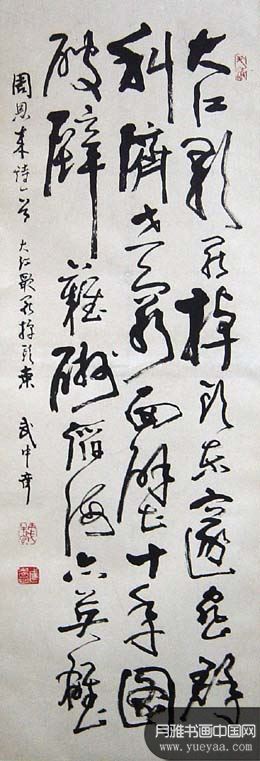 大江歌罷掉頭東邃密群
科濟世窮面壁十年圖
破壁難酬蹈海亦英雄
周恩来詩一首 大江歌罷掉頭東 武中奇
月雅书画中国网
www.yueyaa.com